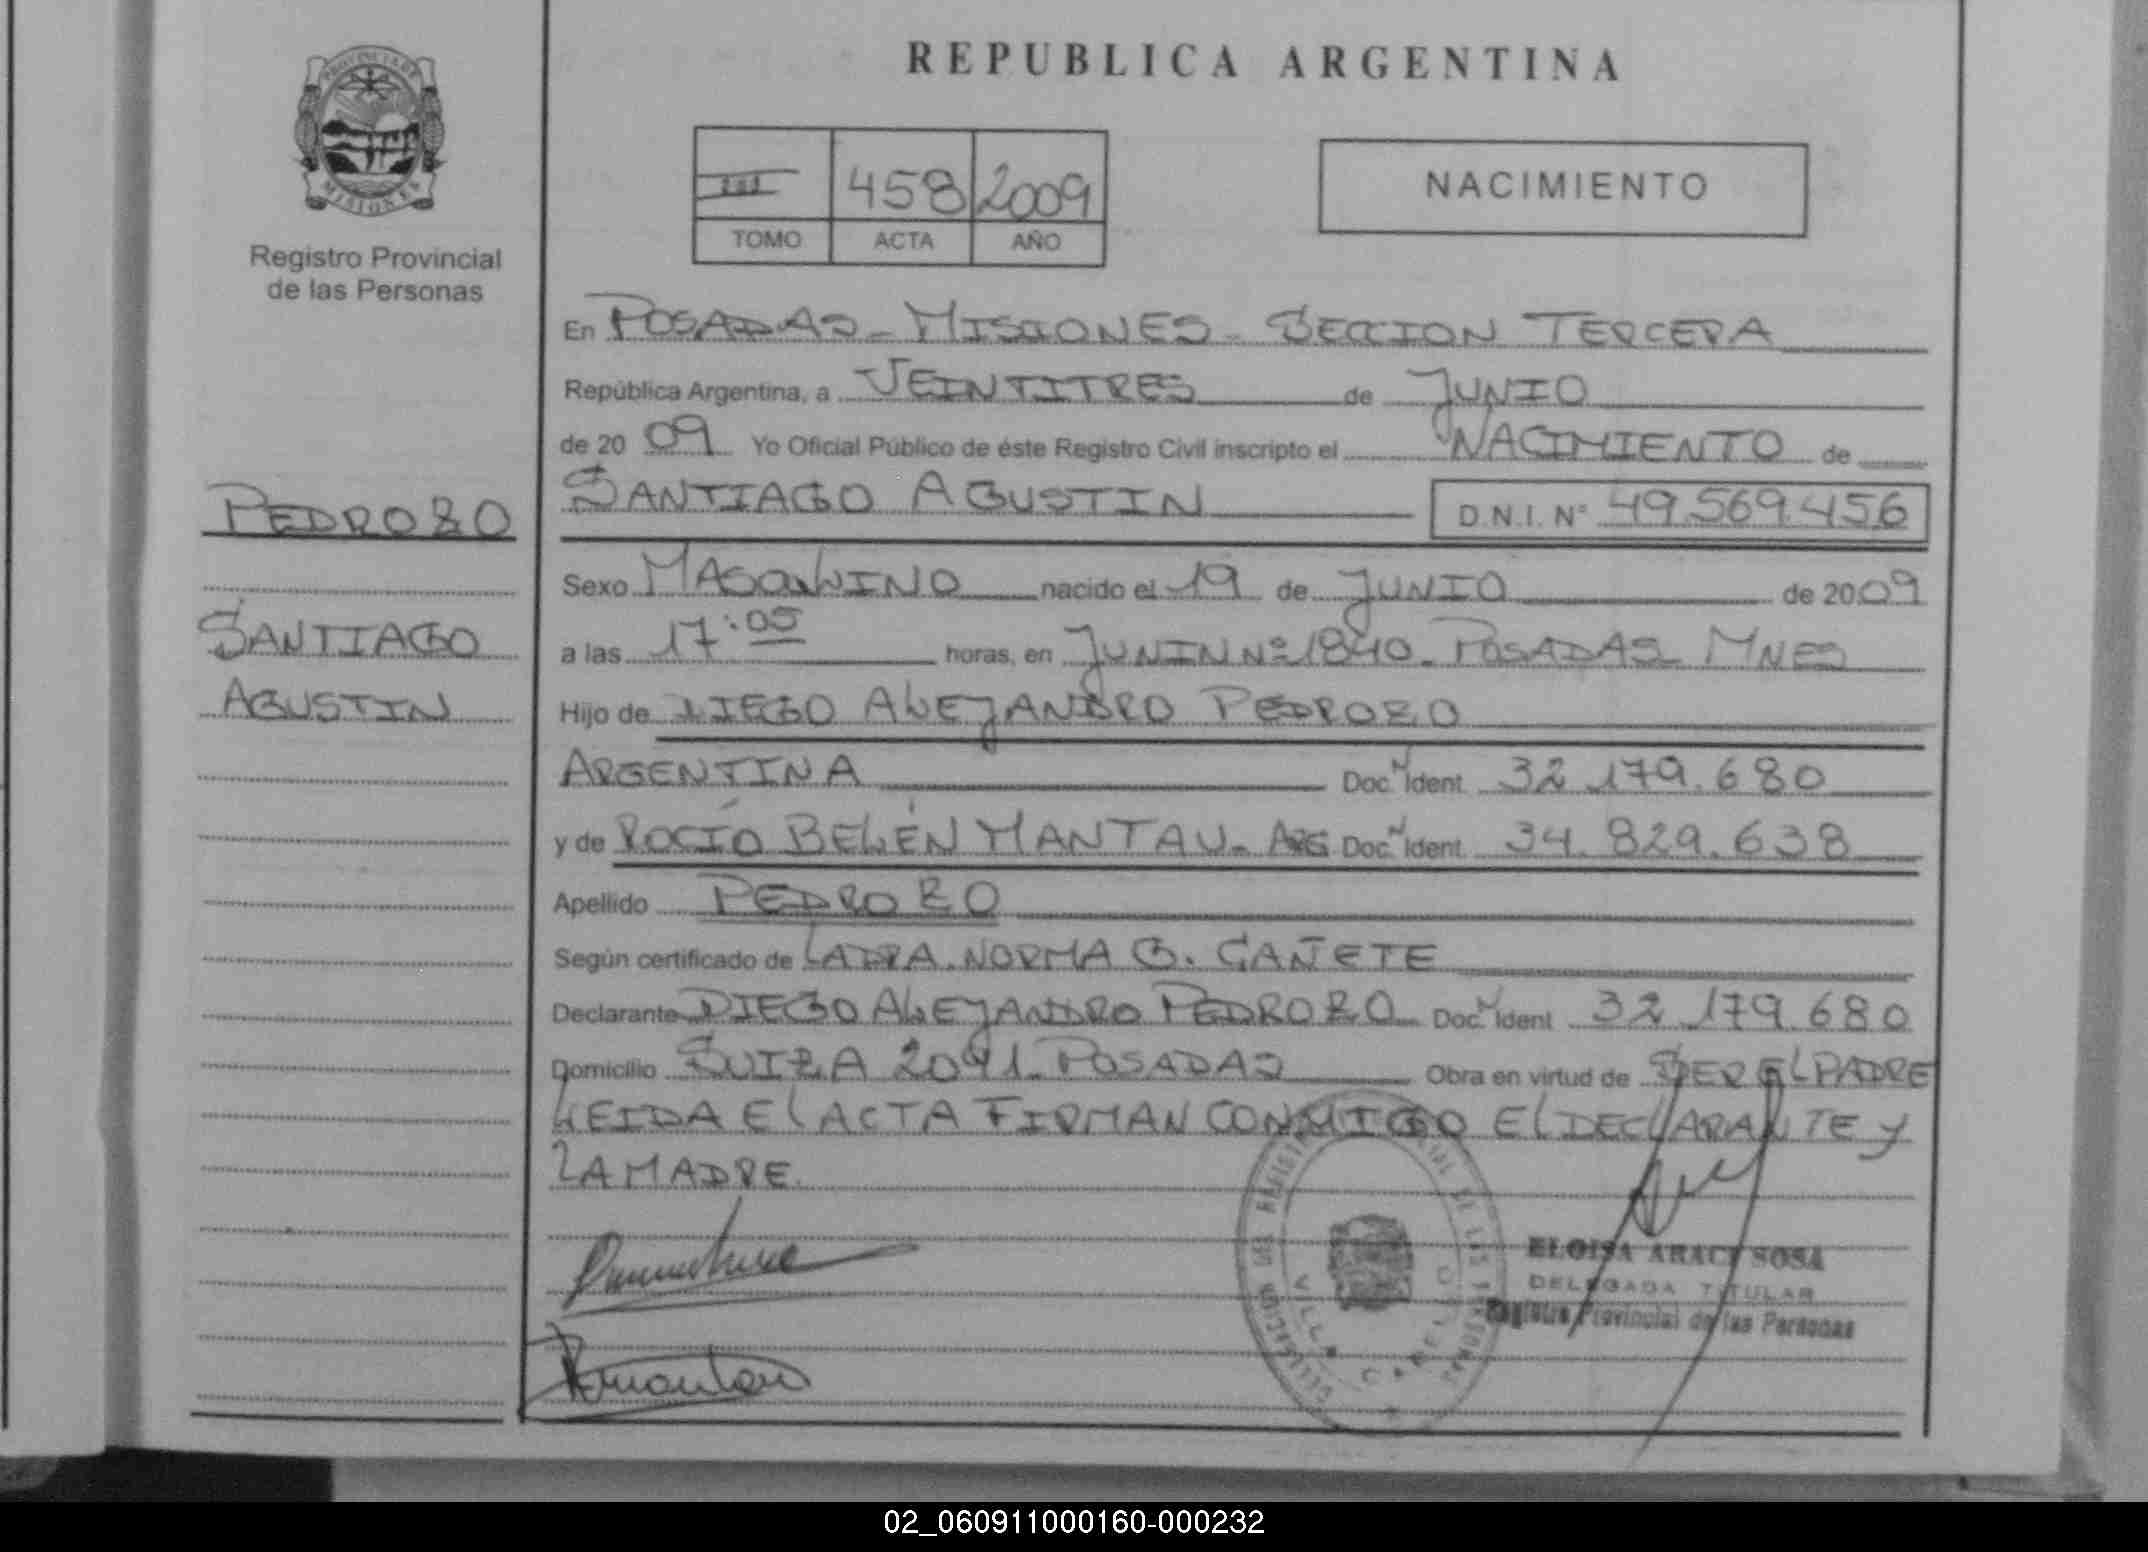 REPUBLICA ARGENTINA
PROVINCIA DE
MISIONES
Registro Provincial
de las Personas
III 458 2009
TOMO ACTA AÑO
NACIMIENTO
En POSADAS - MISIONES - SECCION TERCERA
República Argentina, a VEINTITRES de JUNIO
de 20 09 Yo Oficial Público de éste Registro Civil inscripto el NACIMIENTO de
SANTIAGO AGUSTIN D.N.I. Nº 49.569.456
PEDROZO
SANTIAGO
AGUSTIN
Sexo MASCULINO nacido el 19 de JUNIO de 2009
a las 17:05 horas, en JUNIN Nº 1840 - POSADAS - MNES
Hijo de DIEGO ALEJANDRO PEDROZO
ARGENTINA Doc. N Ident. 32.179.680
y de ROCÍO BELÉN MANTAU - ARG Doc. N Ident. 34.829.638
Apellido PEDROZO
Según certificado de LA DRA. NORMA G. CAÑETE
Declarante DIEGO ALEJANDRO PEDROZO Doc. N Ident. 32.179.680
Domicilio SUIZA 2091 - POSADAS Obra en virtud de SER EL PADRE
LEIDA EL ACTA FIRMAN CONMIGO EL DECLARANTE Y
LA MADRE.
ELOISA ARACI SOSA
DELEGADA TITULAR
Registro Provincial de las Personas
DE LAS PERSONAS
VILLA CABELLO
02_060911000160-000232